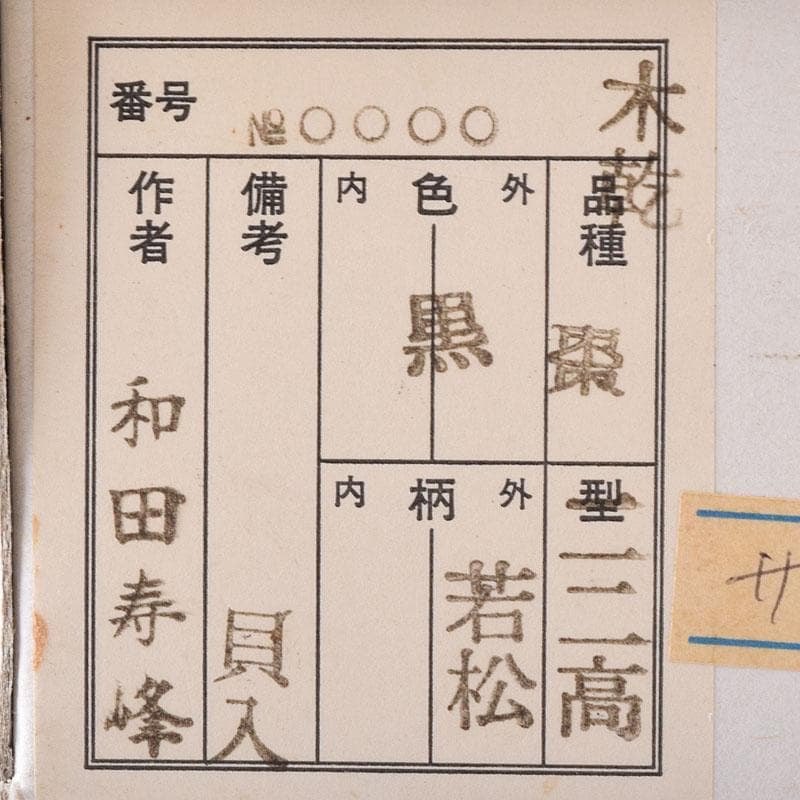 番号 № 〇〇〇〇
木乾
品種
棗
型
高
外 色 内
黒
外 柄 内
若松
備考
貝入
作者
和田寿峰
サ